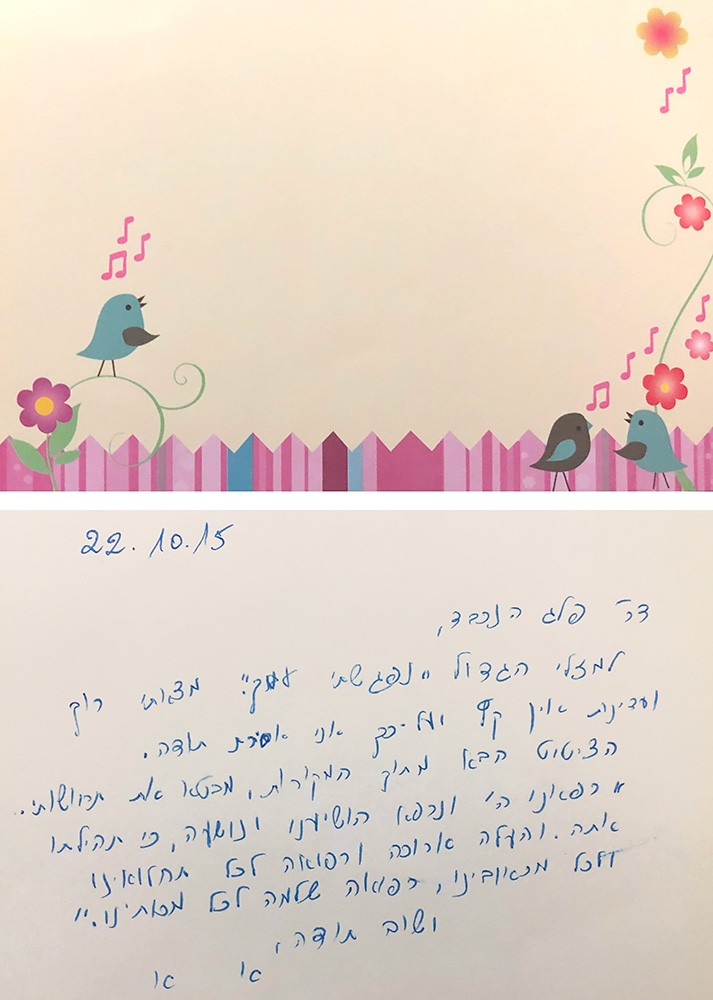 22.10.15
דר' פלג הנכבד,
למזלי הגדול "נפגשתי עמך". מצאתי רוך
ועדינות אין קץ ועל-כך אני אסירת תודה.
הציטוט הבא מתוך המקורות, מבטא את תחושותי..
"רפאינו ה' ונרפא הושיענו ונושעה, כי תהילתו
אתה. והעלה ארוכה ורפואה לכל תחלואינו
ולכל מכאובינו, רפואה שלמה לכל מכותינו."
ושוב תודה,